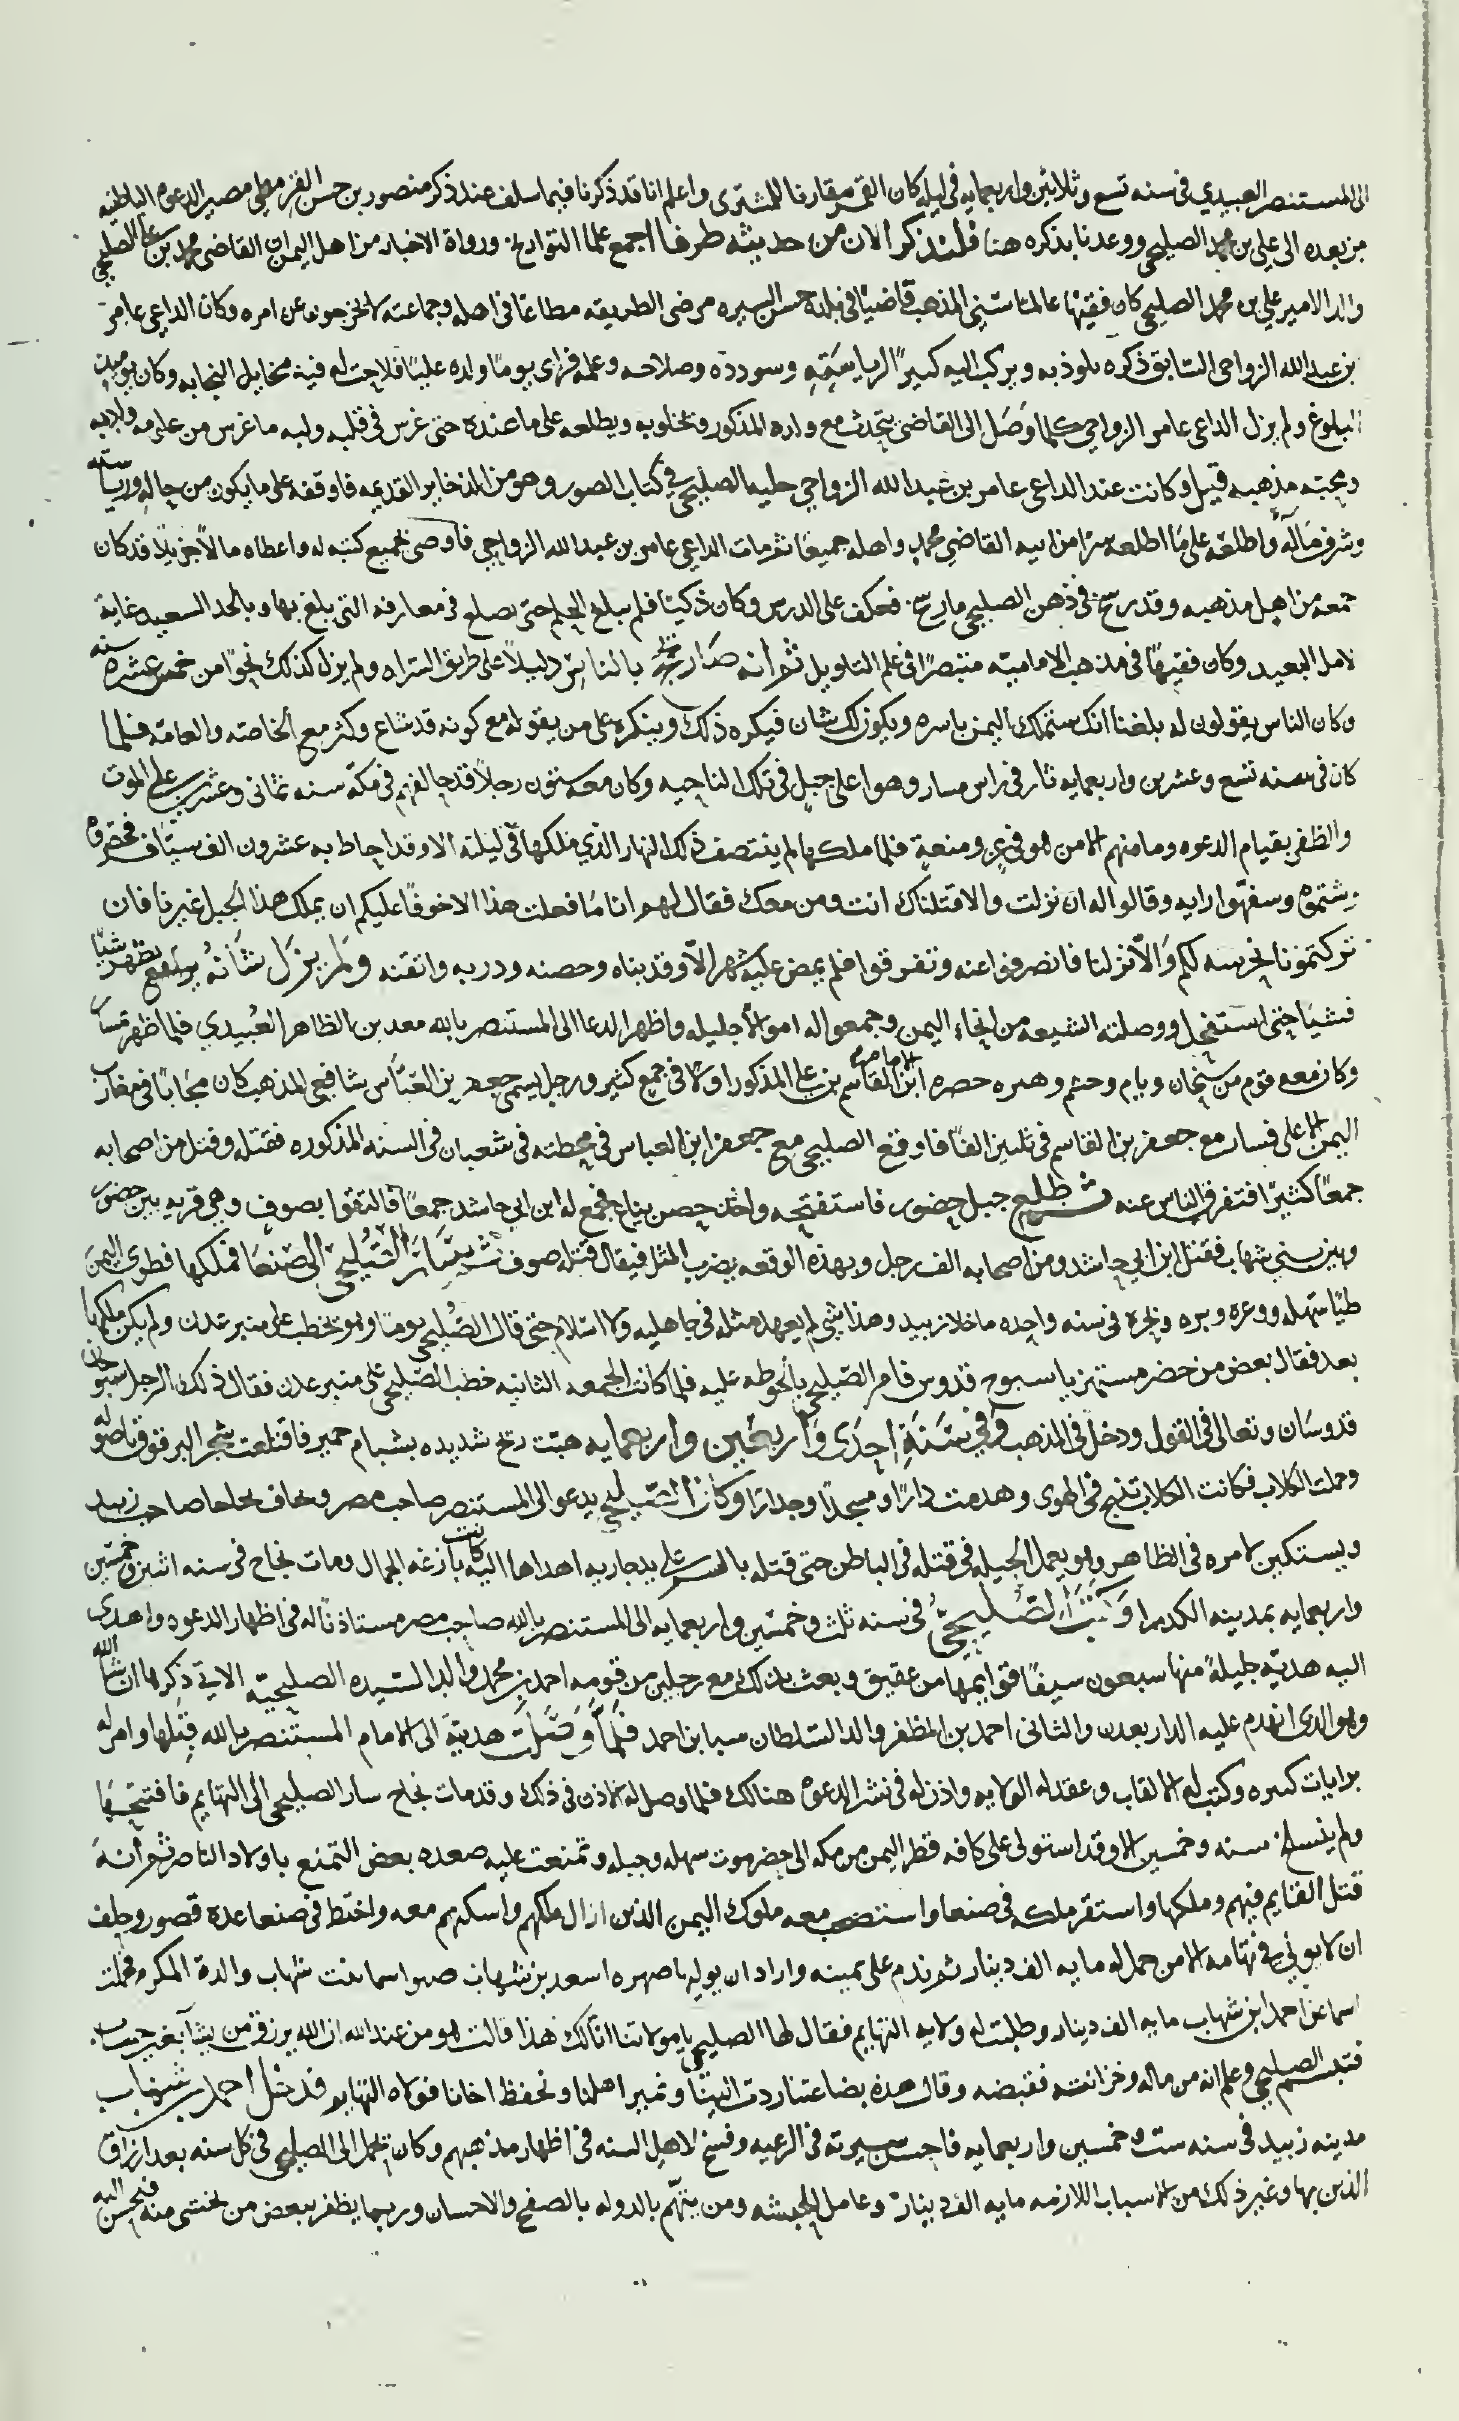 الى المستنصر العبيدي في سنه تسع وثلاثين واربعمايه في ليله كان القمر مقارنا للمشترى واعلم انا قد ذكرنا فيما سلف عند ذكر منصور بن حسن القرمطي مصير الدعوه الباطنيه
من بعده الى علي بن محمد الصليحي ووعدنا بذكره هنا فلنذكر الان من حديثه طرفا اجمع علما التواريخ ورواة الاخبار من اهل اليمن ان القاضي محمد بن علي الصليحي
والد الامير علي بن محمد الصليحي كان فقيها عالما سني المذهب قاضيا في بلده حسن السيره مرضي الطريقه مطاعا في اهله وجماعته لا يخرجون عن امره وكان الداعي عامر
بن عبد الله الزواحي السابق ذكره يلوذ به ويركب اليه كثيرا لرياسته وسودده وصلاحه وعلمه فراى يوما ولده عليا فلاحت له فيه مخايل النجابه وكان يوميذ دون
البلوغ ولم يزل الداعي عامر الزواحي كلما وصل الى القاضي يتحدث مع ولده المذكور ويخلو به ويطلعه على ما عنده حتى غرس في قلبه ولبه ما غرس من علومه وادبه
ومحبة مذهبه قيل وكانت عند الداعي عامر بن عبد الله الزواحي حليه الصليحي في كتاب الصور وهو من الذخاير القديمه فاوقفه على ما يكون من حاله ورياسته
وشرف مآله واطلعه على ما اطلعه سرا من ابيه القاضي محمد واهله جميعا ثم مات الداعي عامر بن عبد الله الزواحي فاوصى بجميع كتبه له واعطاه مالا جزيلا قد كان
جمعه من اهل مذهبه وقد رسخ في ذهن الصليحي ما رسخ فعكف على الدرس وكان ذكيا فلم يبلغ الحلم حتى تضلع في معارفه التي بلغ بها وبالجد السعيد غاية
الامل البعيد وكان فقيها في مذهب الاماميه متبصرا في علم التاويل ثم انه صار يحج بالناس دليلا على طريق السراه ولم يزل كذلك نحوا من خمس عشره سنه
وكان الناس يقولون له بلغنا انك ستملك اليمن باسره ويكون لك شان فيكره ذلك وينكره على من يقوله مع كونه قد شاع وكثر مع الخاصه والعامه فلما
كان في سنه تسع وعشرين واربعمايه ثار في راس مسار وهو اعلى جبل في تلك الناحيه وكان معه ستون رجلا قد حالفهم في مكه سنه ثماني وعشرين على الموت
والظفر بقيام الدعوه وما منهم الا من هو في عز ومنعة فلما ملكها لم ينتصف ذلك النهار الذي ملكها في ليلته الا وقد احاط به عشرون الف سياف فحصروه
وشتموه وسفهوا رايه وقالوا له ان نزلت والا قتلناك انت ومن معك فقال لهم انا ما فعلت هذا الا خوفا عليكم ان يملك هذا الجبل غيرنا فان
تركتمونا نحرسه لكم والا نزلنا فانصرفوا عنه وتفرقوا فلم يمض عليه شهر الا وقد بناه وحصنه ودربه واتقنه ولم يزل شانه يظهر شيا
فشيا حتى استفحل ووصلته الشيعه من انحاء اليمن وجمعوا له اموالا جليله واظهر الدعا الى المستنصر بالله معد بن الظاهر العبيدي فلما اظهر مسار
وكان معه قوم من سنحان ويام وجشم وهبره حصره الامام ابن القاسم بن علي المذكور اولا في جمع كثير ورجل يسمى جعفر بن العباس شافعي المذهب كان مجابا في مغارب
اليمن الاعلى فسار مع جعفر بن القاسم في ثلثين الفا فاوقع الصليحي مع جعفر ابن العباس في محطته في شعبان في السنه المذكوره فقتله وقتل من اصحابه
جمعا كثيرا افتفرق الناس عنه ثم طلع جبل حضور فاستفتحه واخذ حصن يناع فجمع له ابن ابي حاشد جمعا فالتقوا بصوف وهي قريه بين حضور
وبين بني شهاب فقتل ابن ابي حاشد ومن اصحابه الف رجل وبهذه الوقعه يضرب المثل فيقال قتله صوف ثم سار الصليحي الى صنعا فملكها فطوى اليمن
طيا سهله ووعره وبره وبحره في سنه واحده ما خلا زبيد وهذا شي لم يعهد مثله في جاهليه ولا اسلام حتى قال الصليحي يوما وهو يخطب على منبر عدن ولم يكن ملكها
بعد فقال بعض من حضر مستهزيا سبوح قدوس فامر الصليحي بالحوطه عليه فلما كانت الجمعه الثانيه خطب الصليحي على منبر عدن فقال ذلك الرجل سبوحان
قدوسان وتعالى في القول ودخل في المذهب وفي سنة احدى واربعين واربعمايه هبت ريح شديده بشبام حمير فاقتلعت شجر البرقوق باصوله
وحملت الكلاب فكانت الكلاب تنبح في الهوى وهدمت دارا ومسجدا وجدارا وكان الصليحي يدعو الى المستنصر صاحب مصر ويخاف نجاحا صاحب زبيد
ويستكين لامره في الظاهر وهو يعمل الحيله في قتله في الباطن حتى قتله بالسم على يد جاريه اهداها اليه كانت بارعه الجمال ومات نجاح في سنه اثنين وخمسين
واربعمايه بمدينه الكدرا وكتب الصليحي في سنه ثلث وخمسين واربعمايه الى المستنصر بالله صاحب مصر مستاذنا له في اظهار الدعوه واهدى
اليه هديه جليلة منها سبعون سيفا قوايمها من عقيق وبعث بذلك مع رجلين من قومه احمد بن محمد والد السيده الصليحيه الاتي ذكرها ان شا الله
وهو الذي انهدم عليه الدار بعدن والثاني احمد بن المظفر والد السلطان سبا بن احمد فلما وصلت هديته الى الامام المستنصر بالله قبلها وامر له
برايات كثيره وكتب له الالقاب وعقد له الولايه واذن له في نشر الدعوه هنالك فلما وصل له الاذن في ذلك وقد مات نجاح سار الصليحي الى التهايم فافتتحها
ولم ينسلخ سنه وخمسين الا وقد استولى على كافه قطر اليمن من مكه الى حضرموت سهله وجبله وتمنعت عليه صعده بعض التمنع باولاد الناصر ثم انه
قتل القايم فيهم وملكها واستقر ملكه في صنعا واستنهض معه ملوك اليمن الذين ازال ملكهم واسكنهم معه واختط في صنعا عدة قصور وحلف
ان لا يولي تهامه الا من حمل له مايه الف دينار ثم ندم على يمينه واراد ان يوليها صهره اسعد بن شهاب صنو اسما بنت شهاب والدة المكرم فحملت
اسما عن احمد ابن شهاب مايه الف دينار وطلبت له ولايه التهايم فقال لها الصليحي يا مولاتنا انى لك هذا قالت هو من عند الله ان الله يرزق من يشا بغير حساب
فتبسم الصليحي وعلم انه من ماله وخزانته فقبضه وقال هذه بضاعتنا ردت الينا ونمير اهلنا ونحفظ اخانا فولاه التهايم فدخل احمد بن شهاب
مدينه زبيد في سنه ست وخمسين واربعمايه فاحسن سيرته في الرعيه وفسح لاهل السنه في اظهار مذهبهم وكان يحمل الى الصليحي في كل سنه بعد ارزاق
الذين بها وغير ذلك من الاسباب اللازمه مايه الف دينار وعامل الحبشه ومن يتهم بالدوله بالصفح والاحسان وربما يظفر ببعض من يخشى منه فيحسن اليه